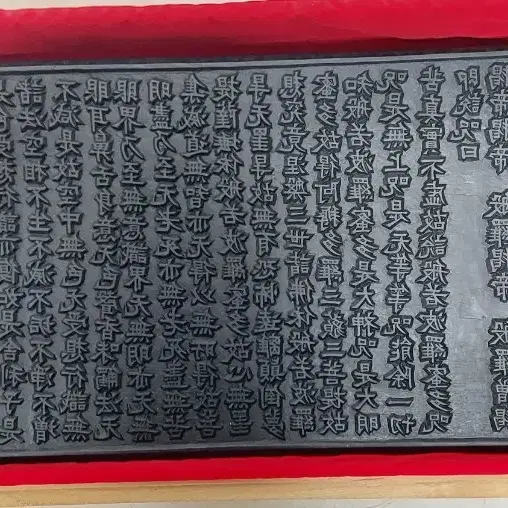 識亦復如是舍利子是
諸法空相不生不滅不垢不淨不增
不減是故空中無色无受想行識無
眼耳鼻舌身意无色聲香味觸法无
眼界乃至無意識界无無明亦无無
明盡乃至无老死亦無老死盡無苦
集滅道無智亦无得以無所得故菩
提薩埵依般若波羅蜜多故心無罣
㝵无罣㝵故無有恐怖遠離顛倒夢
想究竟涅槃三世諸佛依般若波羅
蜜多故得阿耨多羅三藐三菩提故
知般若波羅蜜多是大神呪是大明
呪是無上呪是无等等呪能除一切
苦真實不虛故說般若波羅蜜多呪
即說呪曰
揭帝揭帝 般羅揭帝 般羅僧揭